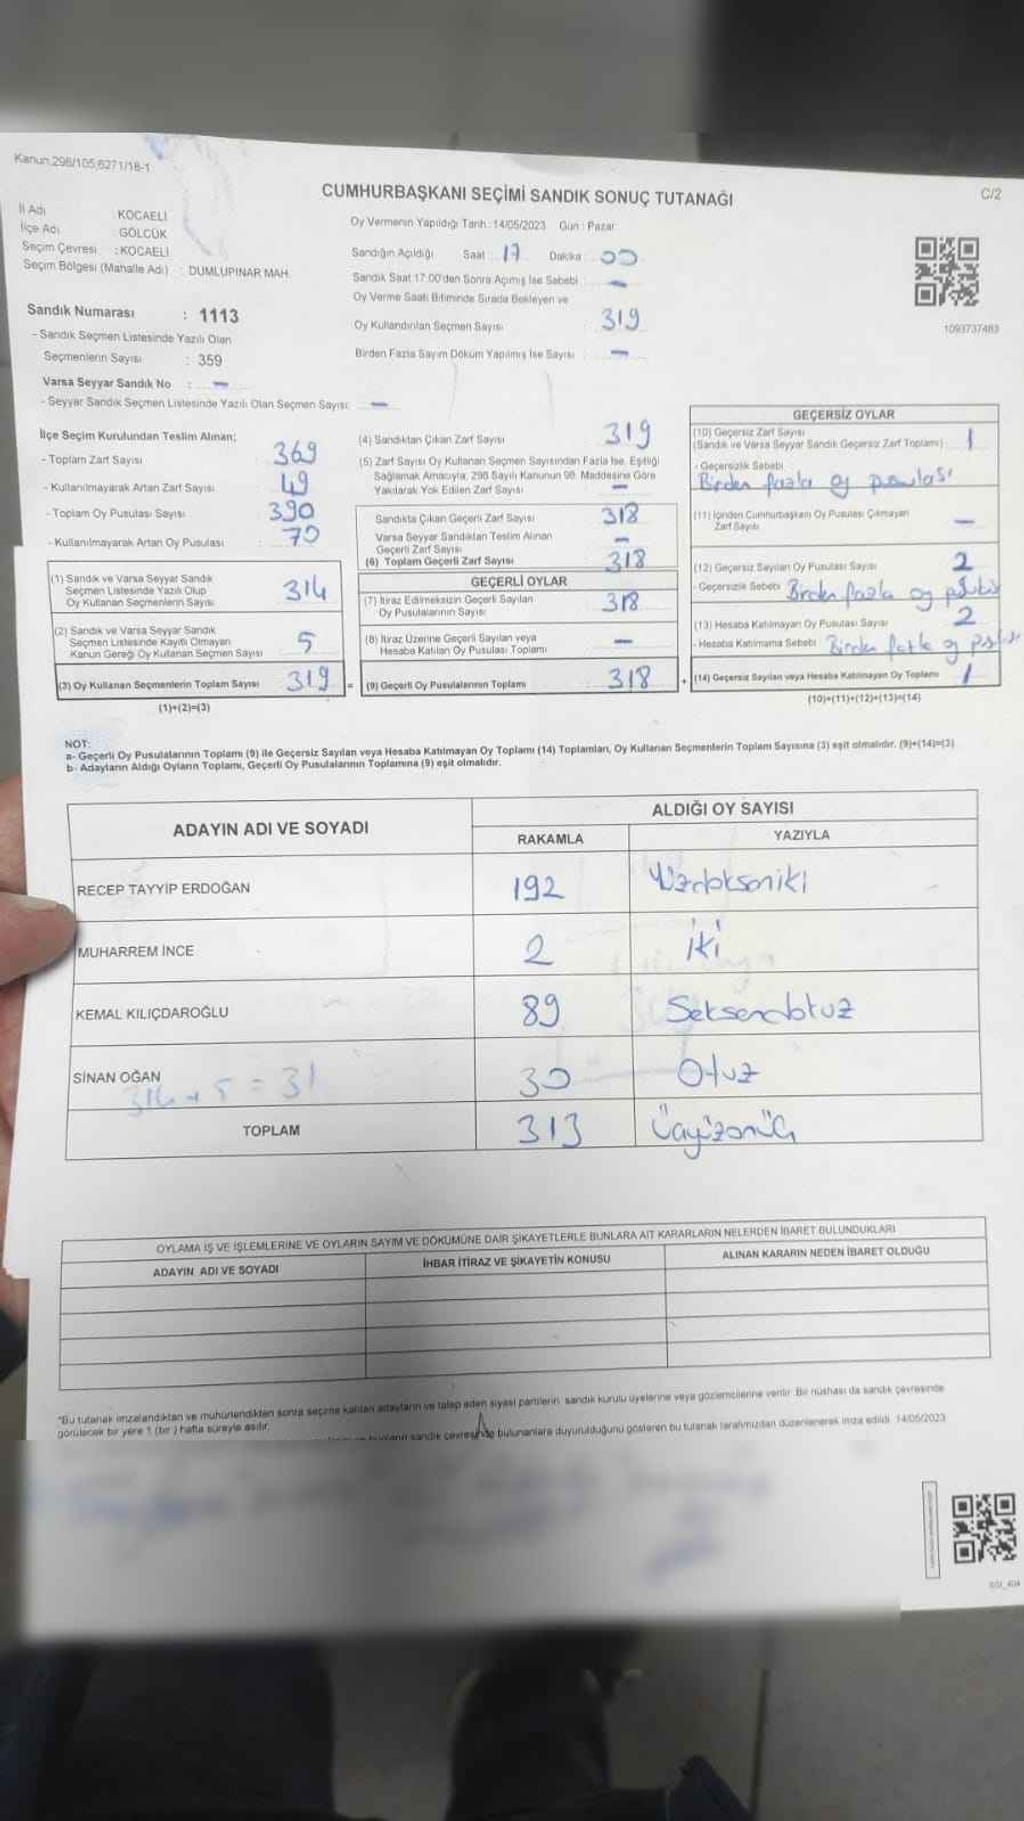 Kanun.298/105,6271/18-1
CUMHURBAŞKANI SEÇİMİ SANDIK SONUÇ TUTANAĞI
C/2
İl Adı : KOCAELİ
İlçe Adı : GÖLCÜK
Seçim Çevresi : KOCAELİ
Seçim Bölgesi (Mahalle Adı) : DUMLUPINAR MAH.
Oy Vermenin Yapıldığı Tarih : 14/05/2023 Gün : Pazar
Sandığın Açıldığı Saat : 17 Dakika : 00
Sandık Saat 17:00'den Sonra Açılmış İse Sebebi : -
Oy Verme Saati Bitiminde Sırada Bekleyen ve
Oy Kullandırılan Seçmen Sayısı 319
Birden Fazla Sayım Döküm Yapılmış İse Sayısı : -
1093737483
Sandık Numarası : 1113
- Sandık Seçmen Listesinde Yazılı Olan
Seçmenlerin Sayısı : 359
Varsa Seyyar Sandık No : -
- Seyyar Sandık Seçmen Listesinde Yazılı Olan Seçmen Sayısı: -
İlçe Seçim Kurulundan Teslim Alınan;
- Toplam Zarf Sayısı : 369
- Kullanılmayarak Artan Zarf Sayısı : 49
- Toplam Oy Pusulası Sayısı : 390
- Kullanılmayarak Artan Oy Pusulası : 70
(1) Sandık ve Varsa Seyyar Sandık
Seçmen Listesinde Yazılı Olup
Oy Kullanan Seçmenlerin Sayısı 314
(2) Sandık ve Varsa Seyyar Sandık
Seçmen Listesinde Kayıtlı Olmayan
Kanun Gereği Oy Kullanan Seçmen Sayısı 5
(3) Oy Kullanan Seçmenlerin Toplam Sayısı 319 =
(1)+(2)=(3)
(4) Sandıktan Çıkan Zarf Sayısı 319
(5) Zarf Sayısı Oy Kullanan Seçmen Sayısından Fazla İse, Eşitliği
Sağlamak Amacıyla, 298 Sayılı Kanunun 98. Maddesine Göre
Yakılarak Yok Edilen Zarf Sayısı -
Sandıkta Çıkan Geçerli Zarf Sayısı 318
Varsa Seyyar Sandıktan Teslim Alınan
Geçerli Zarf Sayısı -
(6) Toplam Geçerli Zarf Sayısı 318
GEÇERLİ OYLAR
(7) İtiraz Edilmeksizin Geçerli Sayılan
Oy Pusulalarının Sayısı 318
(8) İtiraz Üzerine Geçerli Sayılan veya
Hesaba Katılan Oy Pusulası Toplamı -
(9) Geçerli Oy Pusulalarının Toplamı 318 +
GEÇERSİZ OYLAR
(10) Geçersiz Zarf Sayısı
(Sandık ve Varsa Seyyar Sandık Geçersiz Zarf Toplamı) 1
- Geçersizlik Sebebi
Birden fazla oy pusulası
(11) İçinden Cumhurbaşkanı Oy Pusulası Çıkmayan
Zarf Sayısı -
(12) Geçersiz Sayılan Oy Pusulası Sayısı 2
- Geçersizlik Sebebi Birden fazla oy
(13) Hesaba Katılmayan Oy Pusulası Sayısı 2
- Hesaba Katılmama Sebebi Birden fazla oy
(14) Geçersiz Sayılan veya Hesaba Katılmayan Oy Toplamı 1
(10)+(11)+(12)+(13)=(14)
NOT:
a- Geçerli Oy Pusulalarının Toplamı (9) ile Geçersiz Sayılan veya Hesaba Katılmayan Oy Toplamı (14) Toplamları, Oy Kullanan Seçmenlerin Toplam Sayısına (3) eşit olmalıdır. (9)+(14)=(3)
b- Adayların Aldığı Oyların Toplamı, Geçerli Oy Pusulalarının Toplamına (9) eşit olmalıdır.
ADAYIN ADI VE SOYADI
ALDIĞI OY SAYISI
RAKAMLA YAZIYLA
RECEP TAYYİP ERDOĞAN 192 Yüzdoksaniki
MUHARREM İNCE 2 iki
KEMAL KILIÇDAROĞLU 89 Seksendokuz
SİNAN OĞAN 30 Otuz
314 + 5 = 31
TOPLAM 313 Üçyüzonüç
OYLAMA İŞ VE İŞLEMLERİNE VE OYLARIN SAYIM VE DÖKÜMÜNE DAİR ŞİKAYETLERLE BUNLARA AİT KARARLARIN NELERDEN İBARET BULUNDUKLARI
ADAYIN ADI VE SOYADI İHBAR İTİRAZ VE ŞİKAYETİN KONUSU ALINAN KARARIN NEDEN İBARET OLDUĞU
*Bu tutanak imzalandıktan ve mühürlendikten sonra seçime katılan adayların ve talep eden siyasi partilerin sandık kurulu üyelerine veya gözlemcilerine verilir. Bir nüshası da sandık çevresinde
görülecek bir yere 1 (bir ) hafta süreyle asılır.
sandık çevresinde bulunanlara duyurulduğunu gösteren bu tutanak tarafımızdan düzenlenerek imza edildi. 14/05/2023